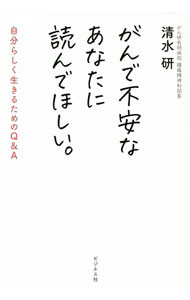 がん研有明病院 腫瘍精神科部長
清水 研
がんで不安な
あなたに
読んでほしい。
自分らしく生きるためのQ&A
ビジネス社